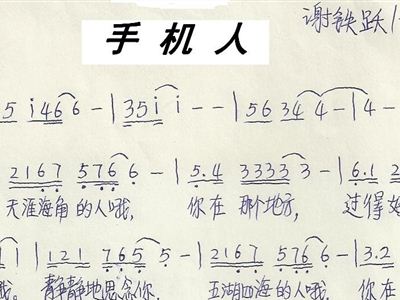 手机人
谢铁跃
5 i466-|35ii--|5634 4-|4-
2167 5766-|5.4 33333-|6.1 2
天涯海角的人哦, 你在 那个地方, 过得好
1|121 7655-|2167 5766-|3.2
哦。静静地思念你. 五湖四海的人哦. 你在